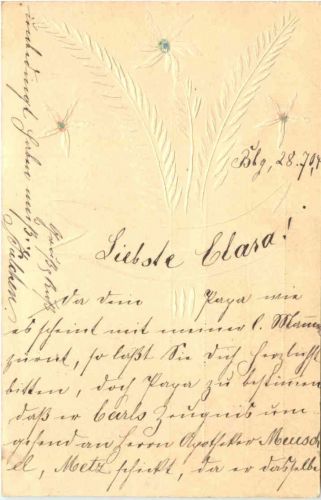 Blg, 28.7.04
Liebste Clara!
Da dein Papa wie
es scheint mit meiner l. Mama
zürnt, so läßt Sie Dich herzlichst
bitten, doch Papa zu bestimmen
daß er Carls Zeugnis um-
gehend an Herrn Apotheker Meusch
el, Metz schickt, da er dasselbe
unbedingt haben muß.